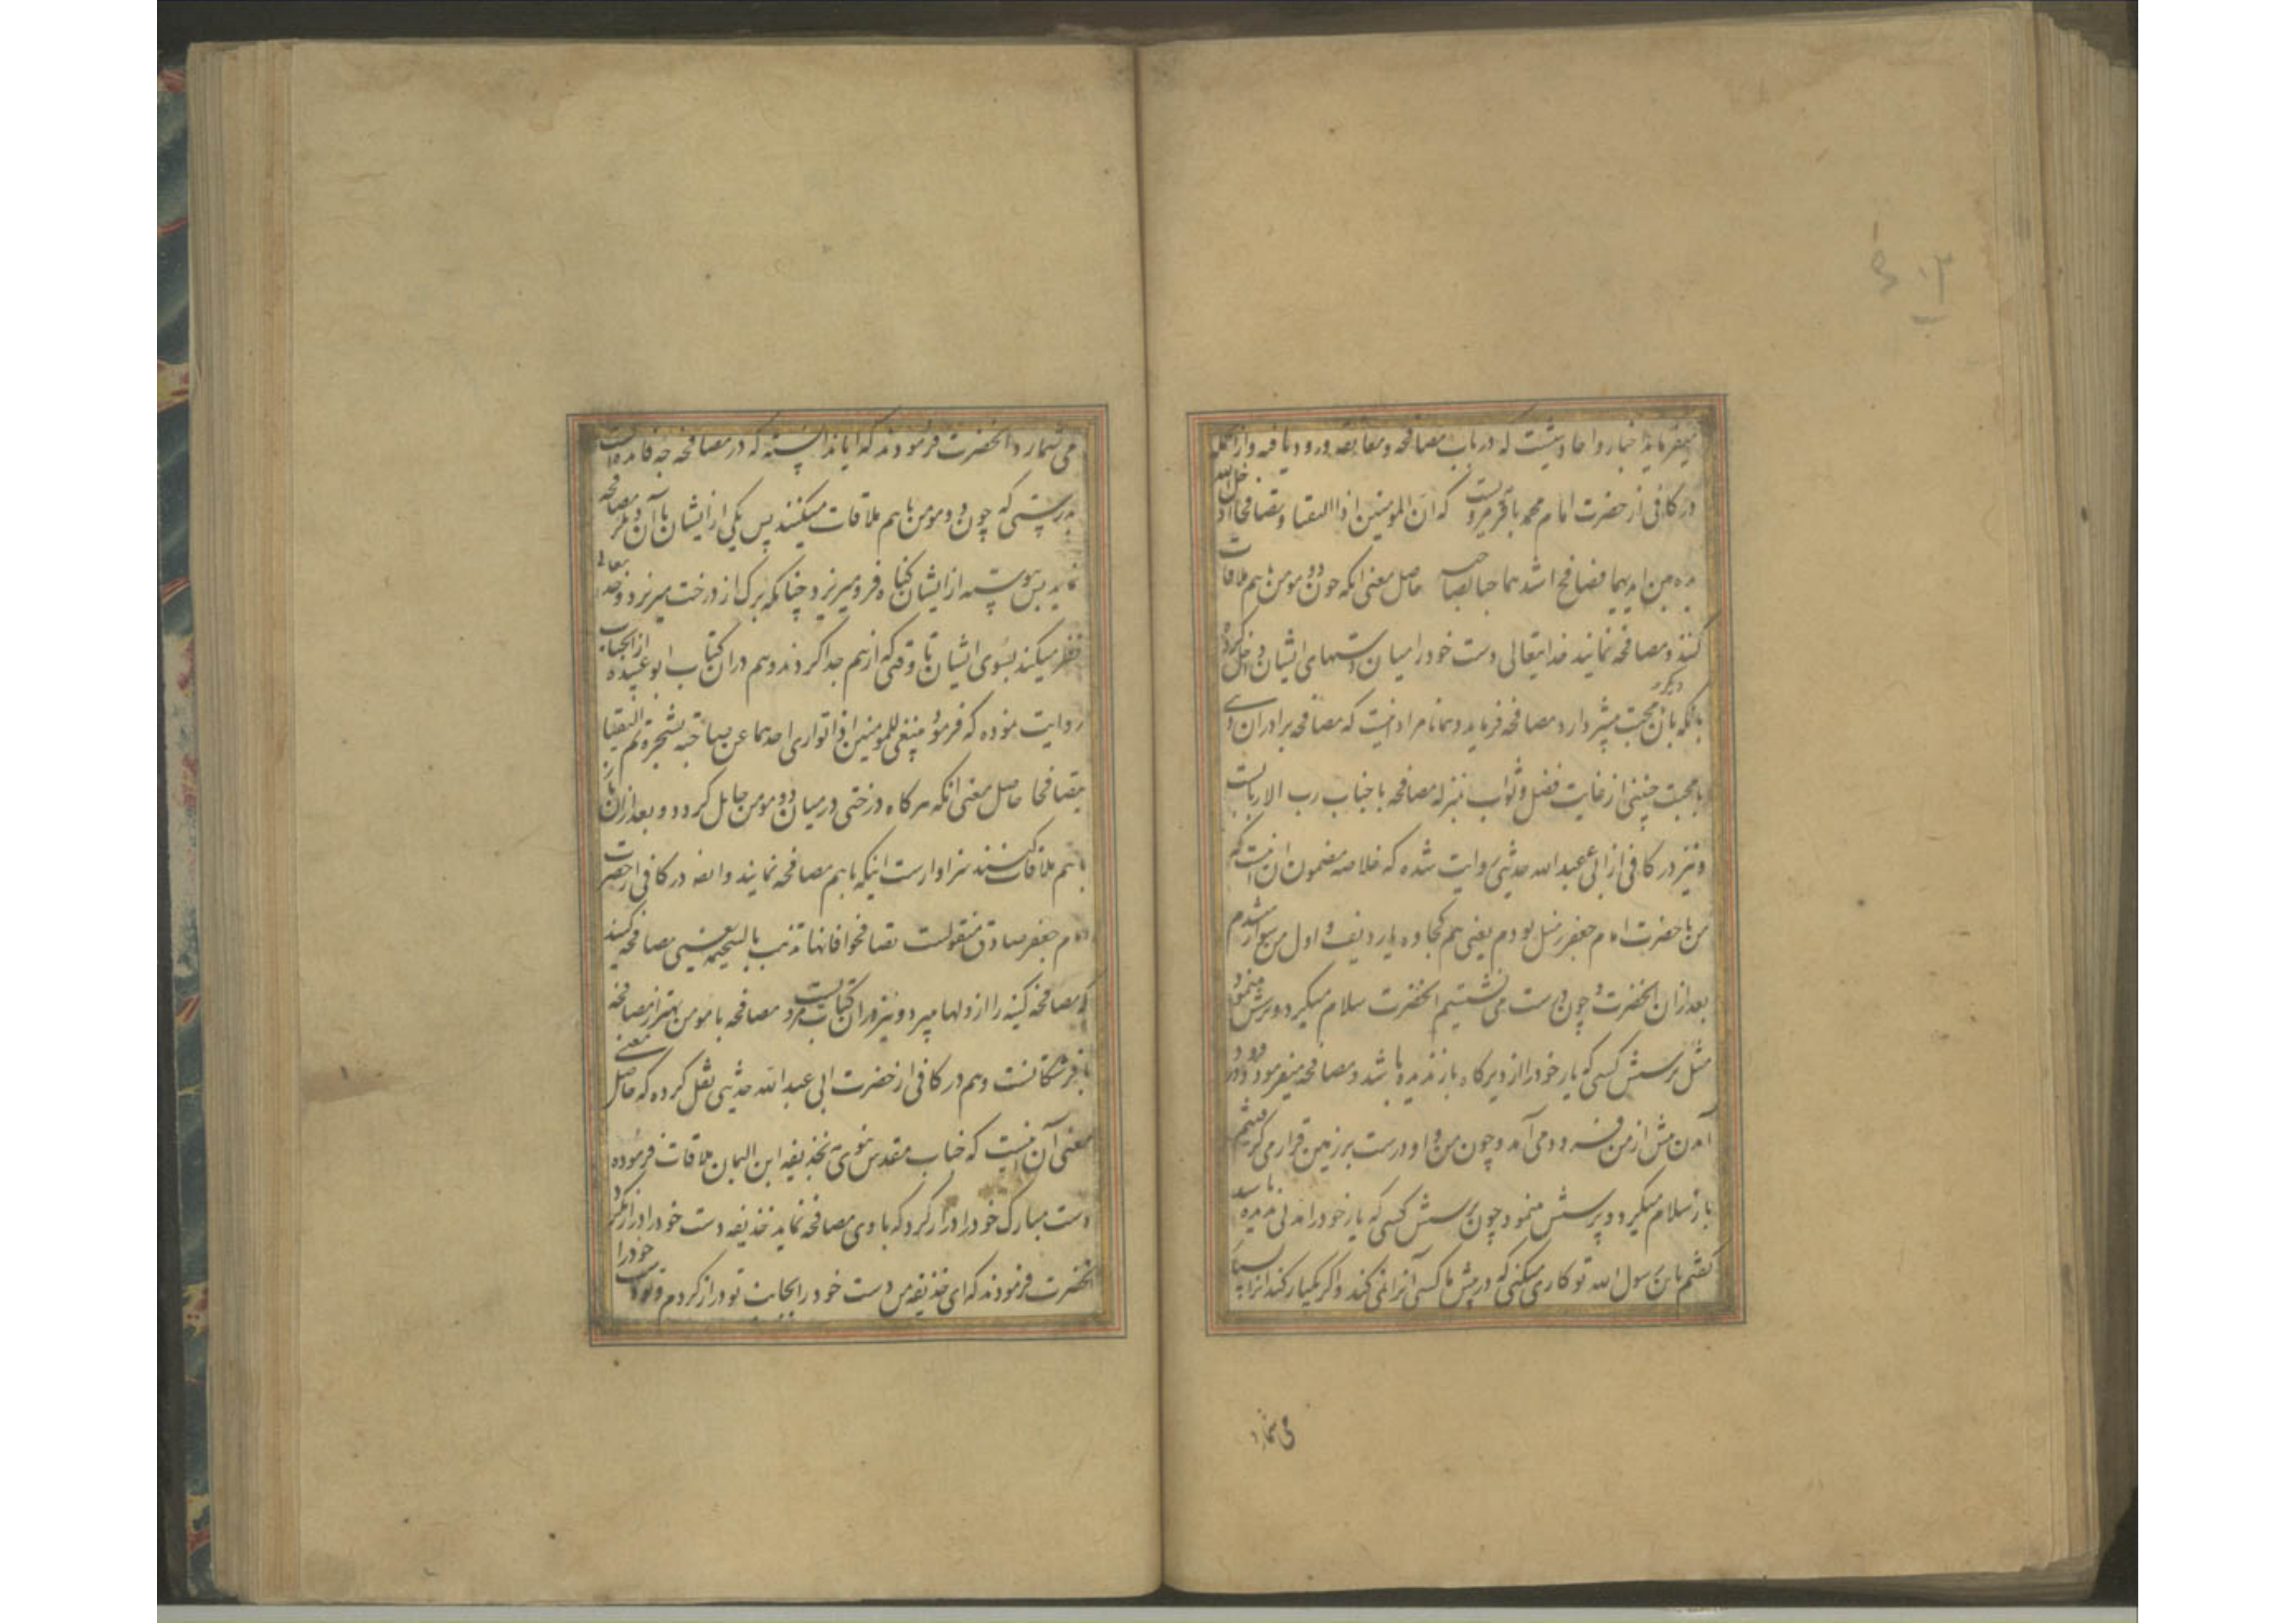 میفرماید اخبار و احادیثیست که در باب مصافحه و معانقه ورود یافته و از آنجمله
در کافی از حضرت امام محمد باقر مرویست که ان المومنین اذا التقیا و تصافحا ادخل الله
یده بین ایدیهما فصافح اشدهما حبا لصاحبه حاصل معنی انکه چون دو مومن باهم ملاقات
کنند و مصافحه نمایند خدایتعالی دست خود را میان دستهای ایشان داخل کرده
بانکه بان دیگر محبت بیشتر دارد مصافحه فرماید و همانا مراد اینست که مصافحه برادران دینی
بامحبت چنینی از غایت فضل و ثواب بمنزله مصافحه با جناب رب الاربابست
و نیز در کافی از ابی عبیدالله حدیثی روایت شده که خلاصه مضمون ان اینست که
من با حضرت امام جعفر زمیل بودم یعنی هم کجاوه یا ردیف و اول من سوار میشدم
بعد از ان انحضرت و چون درست می نشستیم انحضرت سلام میکرد و پرسش مینمود
مثل پرسش کسی که یار خود را از دیرگاه باز ندیده باشد و مصافحه میفرمود و در فرود
آمدن پیش از من فرود می آمد و چون من و او درست بر زمین قرار می گرفتیم
باز سلام میکرد و پرسش مینمود چون پرسش کسی که یار خود را مدتی ندیده باشد
گفتم یا بن رسول الله تو کاری میکنی که در پیش ما کسی آنرا نمی کند و اگر یکبار کند انرا بسیار
می شمارد
می شمارد انحضرت فرمودند که آیا ندانسته که در مصافحه چه فایده است
بدرستی که چون دو مومن باهم ملاقات میکنند پس یکی از ایشان با آن دیگر مصافحه
نماید پس پیوسته از ایشان گناه فرو میریزد چنانکه برک از درخت میریزد و خدایتعالی
نظر میکند بسوی ایشان تا وقتی که از هم جدا گردند و هم در ان کتاب ابو عبیده از انجناب
روایت نموده که فرمود ینبغی للمومنین اذا تواری احدهما عن صاحبه بشجرة ثم التقیا
یتصافحا حاصل معنی انکه هرگاه درختی در میان دو مومن حایل گردد و بعد از ان باز
باهم ملاقات کنند سزاوارست اینکه باهم مصافحه نمایند و ایضا در کافی از حضرت
امام جعفر صادق منقولست تصافحوا فانها تذهب بالسخیمة یعنی مصافحه کنید
که مصافحه کینه را از دلها میبرد و نیز در ان کتاب مرویست مصافحه با مومن بهتر از مصافحه
با فرشتگانست و هم در کافی از حضرت ابی عبدالله حدیثی نقل کرده که حاصل معنی
معنی آن اینست که جناب مقدس نبوی بحذیفه ابن الیمان ملاقات فرموده
دست مبارک خود را دراز کرد که با وی مصافحه نماید حذیفه دست خود را دراز نکرد
انحضرت فرمودند که ای حذیفه من دست خود را بجانب تو دراز کردم و تو دست خود را